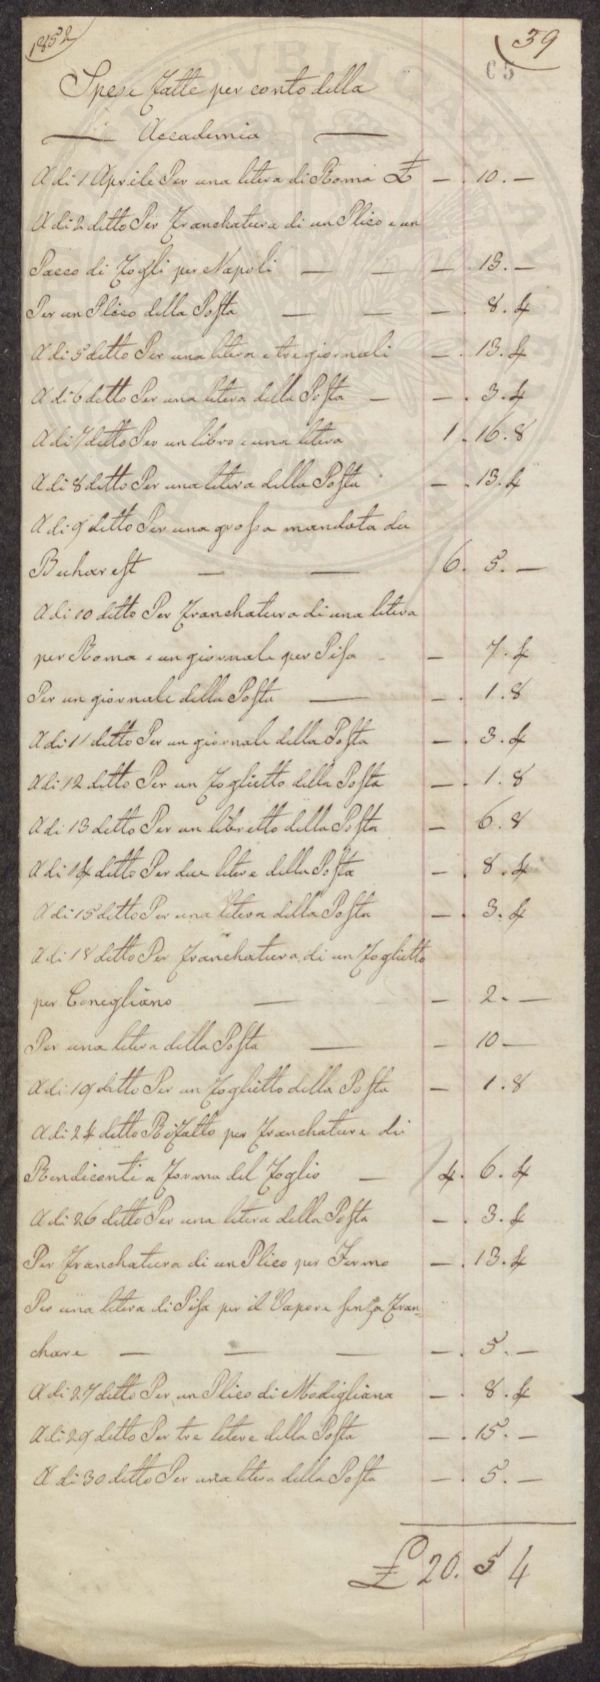 1852
39
C5
Spese fatte per conto della
Accademia
A di 1 Aprile Per una litera di Roma £ — . 10 . —
A di 2 ditto Per Franchatura di un Plico e un
Pacco di Fogli per Napoli — — — . 13 . —
Per un Plico della Posta — — — . 8 . 4
A di 5 ditto Per una litera e tre giornali — . 13 . 4
A di 6 ditto Per una litera della Posta — — . 3 . 4
A di 7 ditto Per un libro e una litera 1 . 16 . 8
A di 8 ditto Per una litera della Posta — . 13 . 4
A di 9 ditto Per una grossa mandata da
Bucharest — — 6 . 5 . —
A di 10 ditto Per Franchatura di una litera
per Roma e un giornale per Pisa — 7 . 4
Per un giornale della Posta — — . 1 . 8
A di 11 ditto Per un giornale della Posta — . 3 . 4
A di 12 ditto Per un Foglietto della Posta — . 1 . 8
A di 13 ditto Per un libretto della Posta — 6 . 8
A di 14 ditto Per due litere della Posta — . 8 . 4
A di 15 ditto Per una litera della Posta — . 3 . 4
A di 18 ditto Per Franchatura di un Foglietto
per Conegliano — — 2 . —
Per una litera della Posta — — 10 —
A di 19 ditto Per un Foglietto della Posta — 1 . 8
A di 24 ditto Rifatto per Franchature di
Rendiconti a Forma del Foglio — 4 . 6 . 4
A di 26 ditto Per una litera della Posta — . 3 . 4
Per Franchatura di un Plico per Fermo — . 13 . 4
Per una litera di Pisa per il Vapore senza Fran-
chare — — — — . 5 . —
A di 27 ditto Per un Plico di Modigliana — . 8 . 4
A di 29 ditto Per tre litere della Posta — . 15 . —
A di 30 ditto Per una litera della Posta — . 5 . —
£ 20 . 5 4